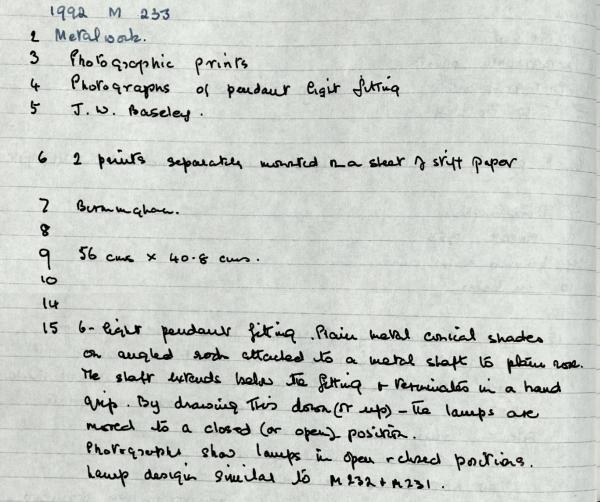 1992 M 233
2 Metalwork.
3 Photographic prints
4 Photographs of pendant light fitting
5 J. W. Baseley.
6 2 prints separately mounted on a sheet of stiff paper
7 Birmingham.
8
9 56 cms × 40.8 cms.
10
14
15 6-light pendant fitting. Plain metal conical shades
on angled rods attached to a metal shaft to plain rose.
The shaft extends below the fitting + terminates in a hand
grip. By drawing this down (or up) - the lamps are
moved to a closed (or open) position.
Photographs show lamps in open + closed positions.
Lamp design similar to M232 + M231.